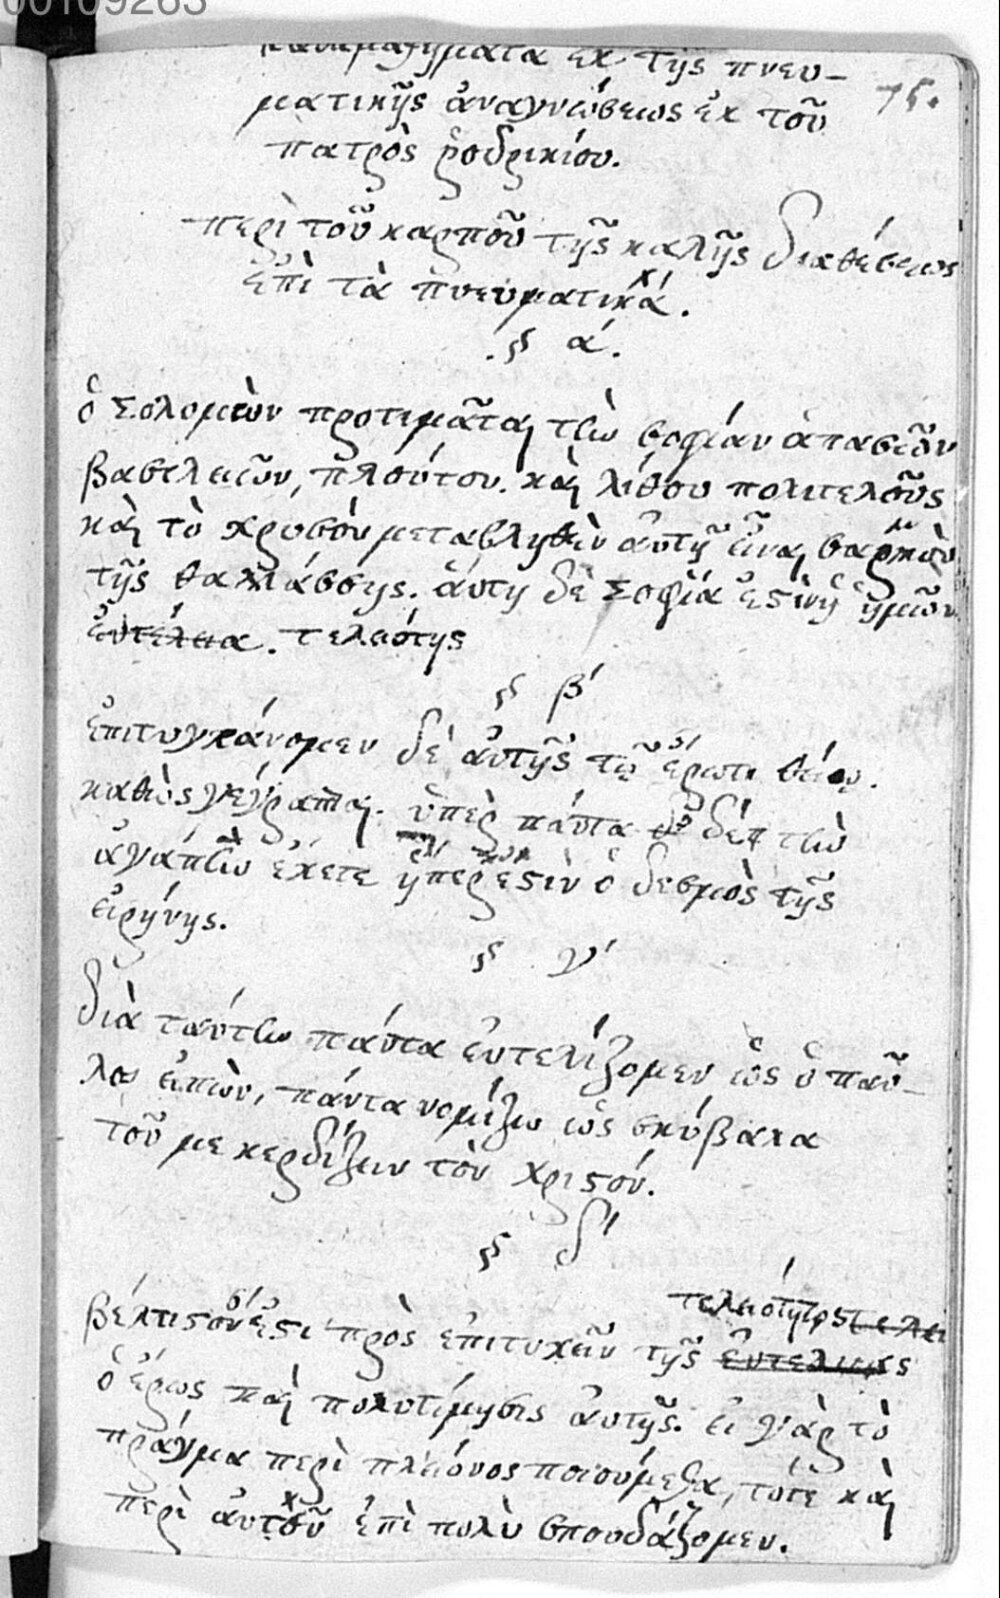 00109263
75.
καὶ μαθήματα ἐκ τῆς πνευ-
ματικῆς ἀναγνώσεως ἐκ τοῦ
πατρὸς ῥοδρικίου.
περὶ τοῦ καρποῦ τῆς καλῆς διαθέσεως
ἐπὶ τὰ πνευματικά.
.ς α΄.
ὁ Σολομὼν προτιμᾶται τὴν σοφίαν ἁπασῶν
βασιλειῶν, πλούτου. καὶ λίθου πολιτελοῦς
καὶ τὸ χρυσὸν μεταβληθὲν ἀυτῇ εἶναι
τῆς θαλάσσης. ἀύτη δὲ Σοφία ἐστὶν ἡ ἡμῶν
ἐυτέλεια. τελειότης
ς β΄
ἐπιτυγχάνομεν δὲ ἀυτῆς τῷ ἔρωτι θείῳ.
καθὼς γέγραπται. ὑπὲρ πάντα δὲ τὴν
ἀγάπην ἔχετε ἥπερ ἐστὶν ὁ δεσμὸς τῆς
εἰρήνης.
ς γ΄
διὰ ταύτην πάντα ἐυτελίζομεν ὡς ὁ παῦ-
λος εἰπὼν, πάντα νομίζω ὡς σκύβαλα
τοῦ με κερδίζειν τὸν χριστόν.
ς δ΄
βέλτιστον ἐστι πρὸς ἐπιτυχεῖν τῆς τελειότητος
ὁ ἔρως καὶ πολυτίμησις ἀυτῆς. εἰ γὰρ τὸ
πράγμα περὶ πλείονος ποιούμεθα, τότε καὶ
περὶ ἀυτοῦ ἐπὶ πολὺ σπουδάζομεν.